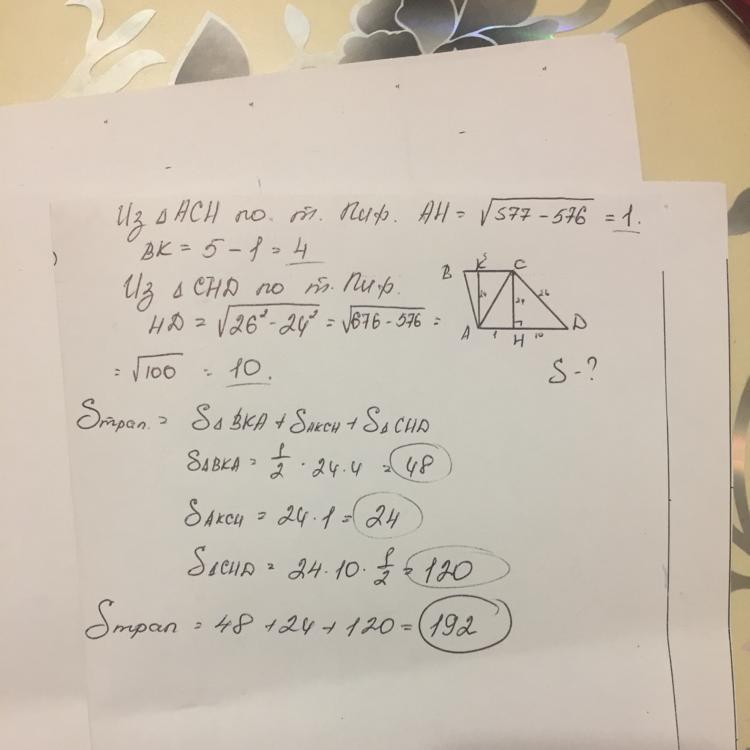 Из △ACH по т. Пиф. AH = √577 - 576 = 1.
BK = 5 - 1 = 4
Из △CHD по т. Пиф.
HD = √26² - 24² = √676 - 576 =
= √100 = 10.
B K 5 C
24 24 26
A 1 H 10 D
S - ?
Sтрап. = S△BKA + SAKCH + S△CHD
S△BKA = 1/2 · 24 · 4 = 48
SAKCH = 24 · 1 = 24
S△CHD = 24 · 10 · 1/2 = 120
Sтрап = 48 + 24 + 120 = 192